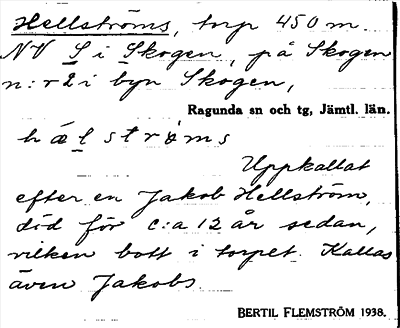 Hellströms, torp 450 m.
NV S i Skogen, på Skogen
n:r 2 i byn Skogen,
Ragunda sn och tg, Jämtl. län.
hælströms
Uppkallat
efter en Jakob Hellström,
död för c:a 12 år sedan,
vilken bott i torpet. Kallas
även Jakobs.
BERTIL FLEMSTRÖM 1938.